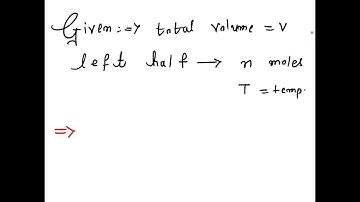 Given:=> total volume = V
left half → n moles
T = temp.
=>